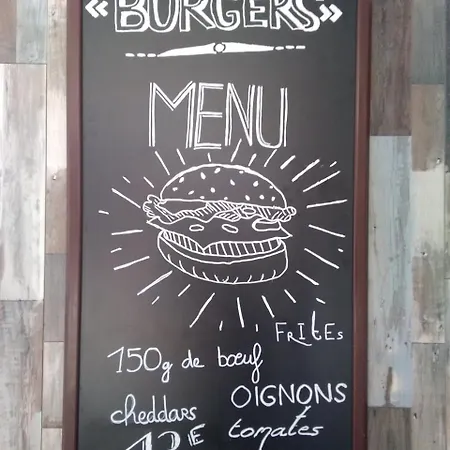 « BURGERS »
MENU
FRITEs
150g de bœuf
OIGNONS
cheddars
12€ tomates